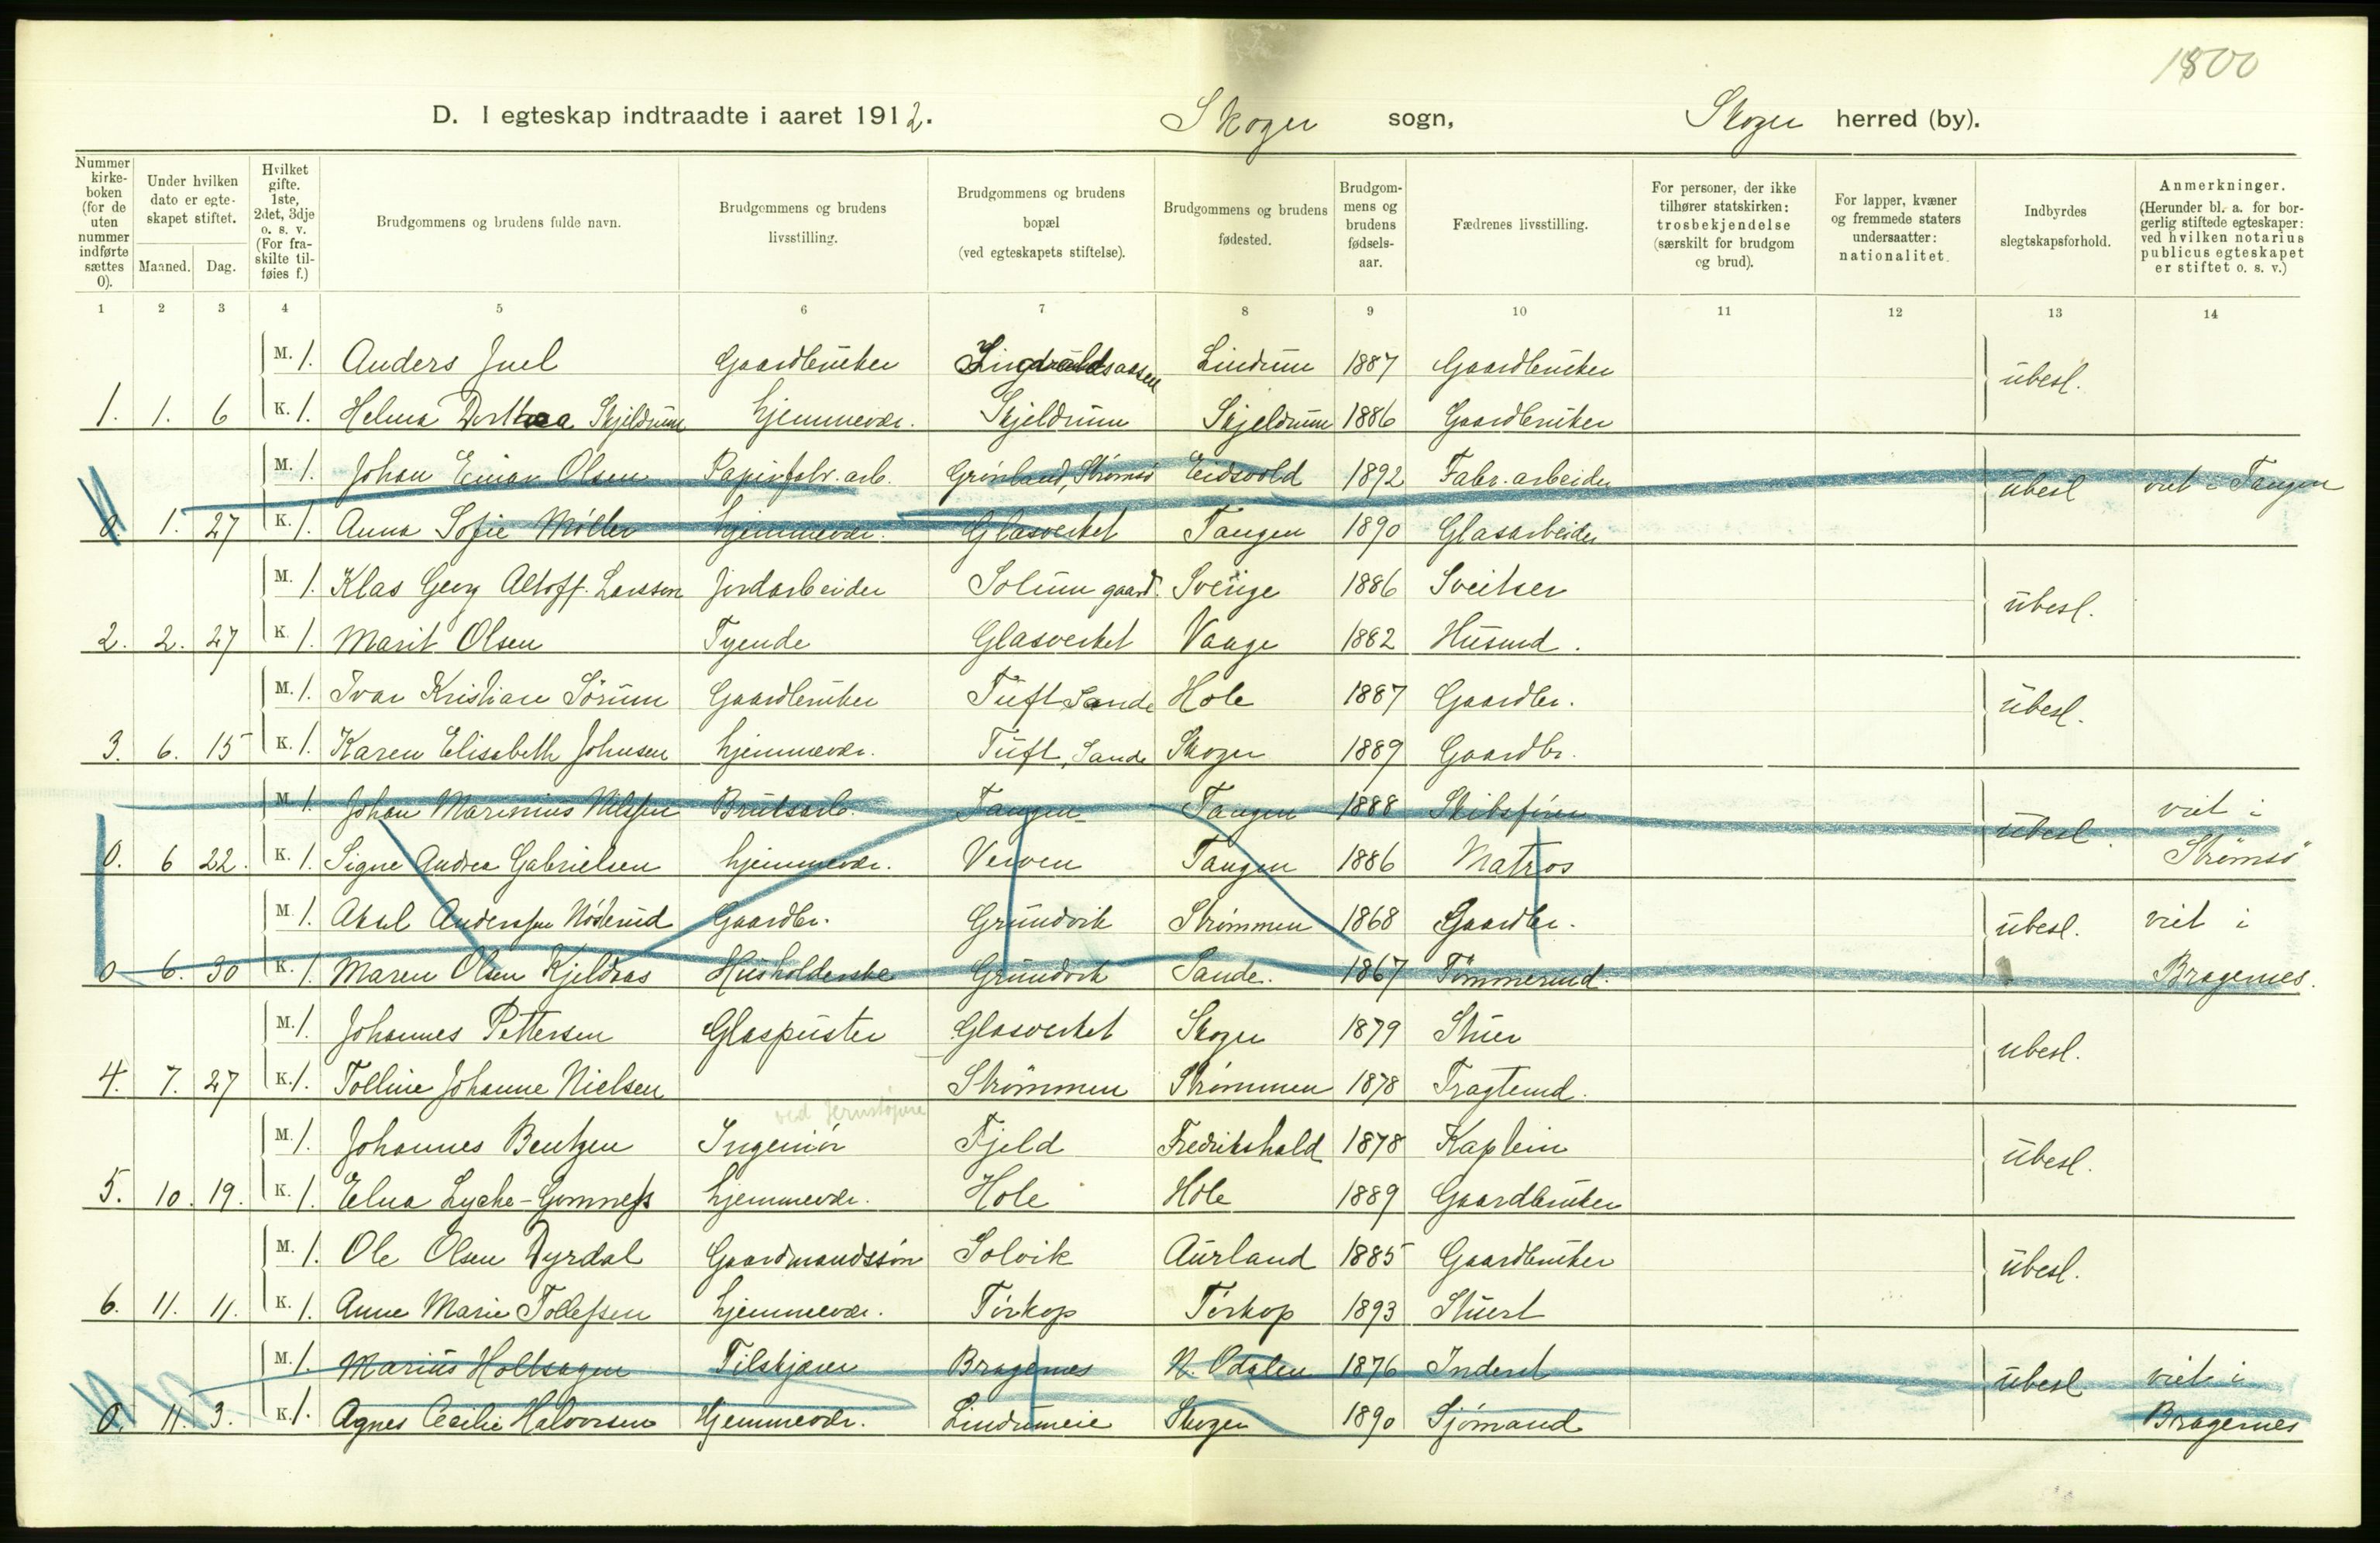 1800
D. I egteskap indtraadte i aaret 1912. Skoger sogn, Skoger herred (by).
Nummer kirke-boken (for de uten nummer indførte sættes 0).
Under hvilken dato er egte-skapet stiftet.
Maaned. Dag.
Hvilket gifte. 1ste, 2det, 3dje o. s. v. (For fra-skilte til-føies f.)
Brudgommens og brudens fulde navn.
Brudgommens og brudens livsstilling.
Brudgommens og brudens bopæl (ved egteskapets stiftelse).
Brudgommens og brudens fødested.
Brudgom-mens og brudens fødsels-aar.
Fædrenes livsstilling.
For personer, der ikke tilhører statskirken: trosbekjendelse (særskilt for brudgom og brud).
For lapper, kvæner og fremmede staters undersaatter: nationalitet.
Indbyrdes slegtskapsforhold.
Anmerkninger. (Herunder bl. a. for bor-gerlig stiftede egteskaper: ved hvilken notarius publicus egteskapet er stiftet o. s. v.)
1 2 3 4 5 6 7 8 9 10 11 12 13 14
M. 1. Anders Juel Gaardbruker Lindrum 1887 Gaardbruker ubesl.
1. 1. 6 K. 1. Helma Dorthea Skjeldrum hjemmevær. Skjeldrum Skjeldrum 1886 Gaardbruker
M. 1. Johan Einar Olsen Papirfabr. arb. Grønland, Strømsø Eidsvold 1892 Fabr. arbeider ubesl viet i Tangen
0. 1. 27 K. 1. Anna Sofie Møller hjemmevær. Glasverket Tangen 1890 Glasarbeider
M. 1. Klas Georg Altoff. Larsson Jordarbeider Solum gaard. Sverige 1886 Sveitser ubesl.
2. 2. 27 K. 1. Marit Olsen Tyende Glasverket Vaage 1882 Husmd.
M. 1. Ivar Kristian Sørum Gaardbruker Tuft Sande Hole 1887 Gaardbr. ubesl.
3. 6. 15 K. 1. Karen Elisabeth Johnsen hjemmevær. Tuft, Sande Skoger 1889 Gaardbr.
M. 1. Johan Marinius Nilssen Bruksarb. Tangen Tangen 1888 Skibsfører ubesl. viet i
0. 6 22. K. 1. Signe Andrea Gabrielsen hjemmevær. Verven Tangen 1886 Matros Strømsø
M. 1. Aksel Anderssen Nøsterud Gaardbr. Grundvik Strømmen 1868 Gaardbr. ubesl. viet i
0 6. 30 K. 1. Maren Olsen Kjeldaas Husholderske Grundvik Sande. 1867 Tømmermd. Bragernes.
M. 1. Johannes Pettersen Glaspuster Glasverket Skoger 1879 Stuer ubesl.
4. 7. 27 K. 1. Tolline Johanne Nielsen Strømmen Strømmen 1878 Fragtemd.
ved
M. 1. Johannes Bentzen Ingeniør Fjeld Fredrikshald 1878 Kaptein ubesl.
5. 10. 19. K. 1. Elna Lyche-Gomness hjemmevær. Hole Hole 1889 Gaardbruker
M. 1. Ole Olsen Dyrdal Gaardmandssøn Solvik Aurland 1885 Gaardbruker ubesl.
6. 11. 11. K. 1. Anne Marie Tollefsen hjemmevær. Tørkop Tørkop 1893 Stuert
M. 1. Marius Holtsagen Tilskjærer Bragernes N. Odalen 1876 Inderst ubesl. viet i
0. 11. 3. K. 1. Agnes Cecilie Halvorsen Hjemmevær. Lindumeie Skoger 1890 Sjømand Bragernes